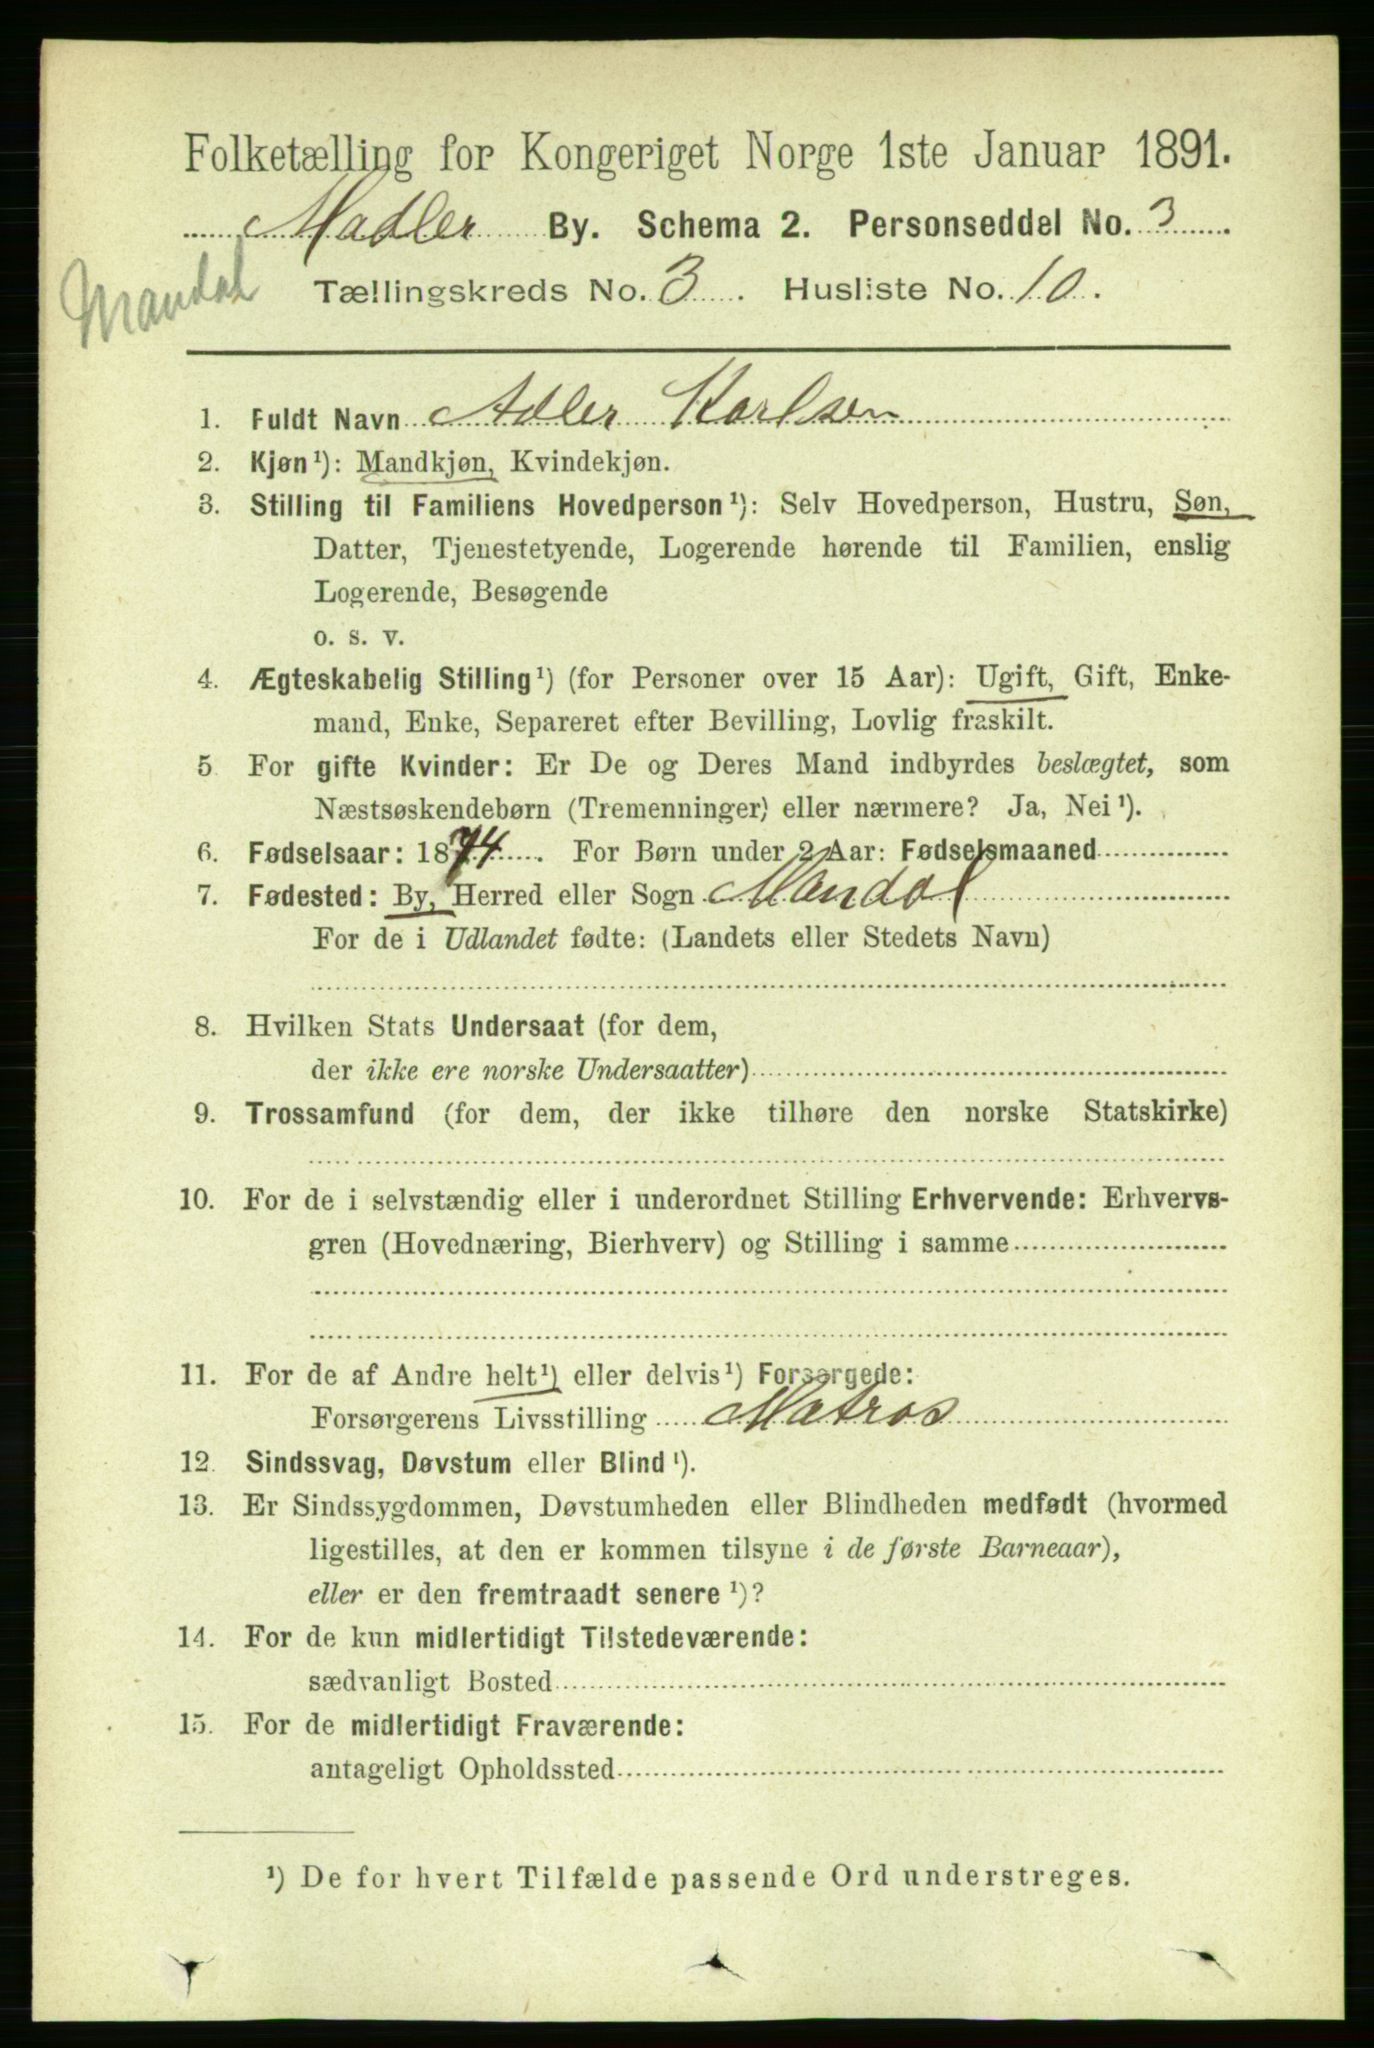 Folketælling for Kongeriget Norge 1ste Januar 1891.
Madler By. Schema 2. Personseddel No. 3.
Mandal
Tællingskreds No. 3. Husliste No. 10.
1. Fuldt Navn Adler Karlsen
2. Kjøn¹): Mandkjøn, Kvindekjøn.
3. Stilling til Familiens Hovedperson¹): Selv Hovedperson, Hustru, Søn,
Datter, Tjenestetyende, Logerende hørende til Familien, enslig
Logerende, Besøgende
o. s. v.
4. Ægteskabelig Stilling¹) (for Personer over 15 Aar): Ugift, Gift, Enke-
mand, Enke, Separeret efter Bevilling, Lovlig fraskilt.
5 For gifte Kvinder: Er De og Deres Mand indbyrdes beslægtet, som
Næstsøskendebørn (Tremenninger) eller nærmere? Ja, Nei¹).
6. Fødselsaar: 1874. For Børn under 2 Aar: Fødselsmaaned
7. Fødested: By, Herred eller Sogn Mandal
For de i Udlandet fødte: (Landets eller Stedets Navn)
8. Hvilken Stats Undersaat (for dem,
der ikke ere norske Undersaatter)
9. Trossamfund (for dem, der ikke tilhøre den norske Statskirke)
10. For de i selvstændig eller i underordnet Stilling Erhvervende: Erhvervs-
gren (Hovednæring, Bierhverv) og Stilling i samme
11. For de af Andre helt¹) eller delvis¹) Forsørgede:
Forsørgerens Livsstilling Matros
12. Sindssvag, Døvstum eller Blind¹).
13. Er Sindssygdommen, Døvstumheden eller Blindheden medfødt (hvormed
ligestilles, at den er kommen tilsyne i de første Barneaar),
eller er den fremtraadt senere¹)?
14. For de kun midlertidigt Tilstedeværende:
sædvanligt Bosted
15. For de midlertidigt Fraværende:
antageligt Opholdssted
¹) De for hvert Tilfælde passende Ord understreges.